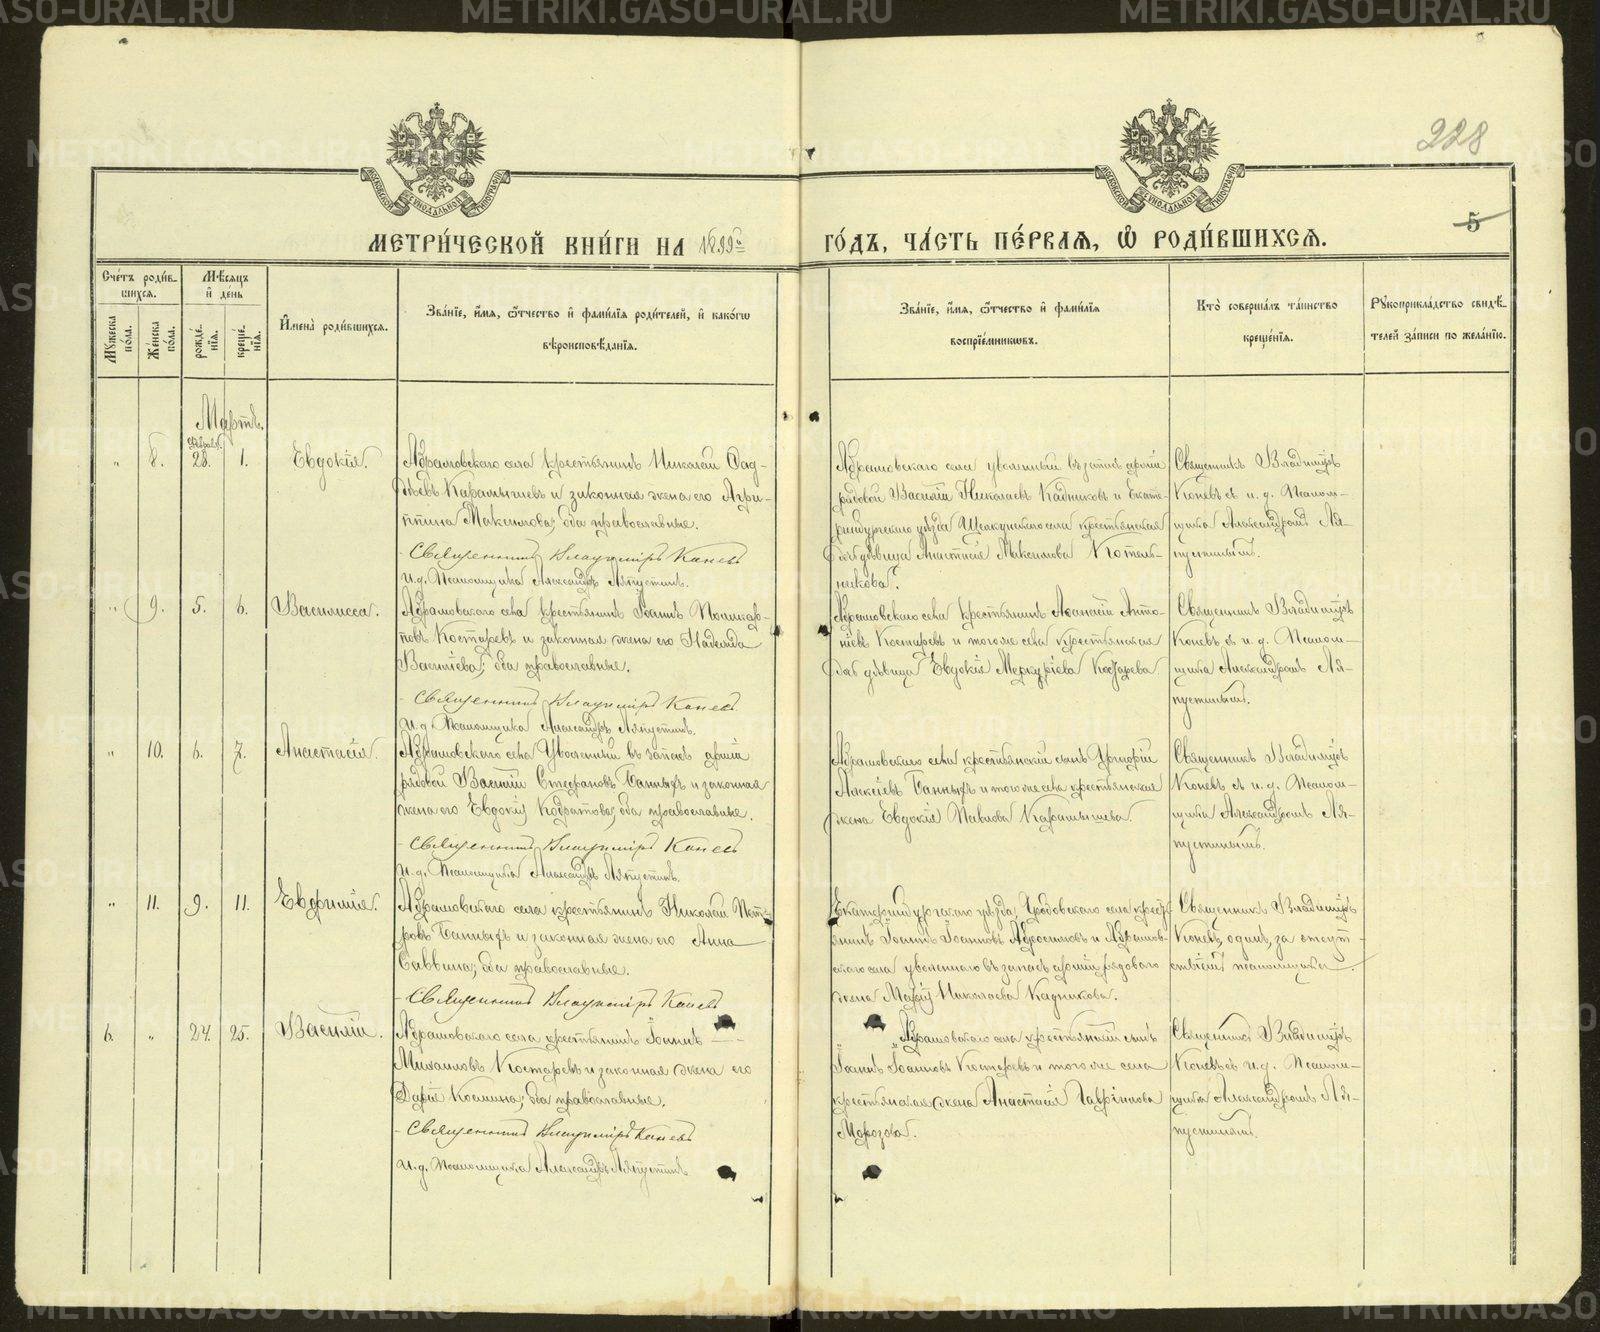 METRIKI.GASO-URAL.RU
228
МОСКОВСКОЙ СѴНОДАЛЬНОЙ ТИПОГРАФІИ
МОСКОВСКОЙ СѴНОДАЛЬНОЙ ТИПОГРАФІИ
5
МЕТРИ́ЧЕСКОЙ КНИ́ГИ НА 1899 ГО́ДЪ, ЧА́СТЬ ПЕ́РВАЯ, Ѿ РОДИ́ВШИХСЯ.
Сче́тъ роди́в-
шихся.
Мѣ́сяцъ
и҆ де́нь
Мꙋ́жеска по́ла.
Же́нска по́ла.
рожде́-
нїѧ.
креще́-
нїѧ.
И҆мена̀ роди́вшихся.
Зва́нїе, и҆́мѧ, ѻ҆́тчество и҆ фами́лїѧ роди́телей, и҆ како́гѡ
вѣроисповѣ́данїѧ.
Зва́нїе, и҆́мѧ, ѻ҆́тчество и҆ фами́лїѧ
воспрїе́мникѡвъ.
Кто̀ соверша́лъ та́инство
креще́нїѧ.
Рꙋкоприкла́дство свидѣ́-
телей за́писи по жела́нїю.
Мартъ.
" 8. Феврал. 28. 1. Евдокія.
Абрамовскаго села крестьянинъ Николай Фад-
дѣевъ Карамышевъ и законная жена его Агри-
ппина Максимова, оба православные.
Священникъ Владиміръ Коневъ
И. д. Псаломщика Александръ Ляпустинъ.
Абрамовскаго села уволенный въ запасъ арміи
рядовой Василій Николаевъ Кадниковъ и Екате-
ринбургскаго уѣзда Щелкунскаго села крестьянская
дочь дѣвица Анастасія Максимова Котель-
никова.
Священникъ Владиміръ
Коневъ съ и. д. Псалом-
щика Александромъ Ля-
пустинымъ.
" 9. 5. 6. Василисса.
Абрамовскаго села крестьянинъ Іоаннъ Поликар-
повъ Костаревъ и законная жена его Надежда
Васильева, оба православные.
Священникъ Владиміръ Коневъ
И. д. Псаломщика Александръ Ляпустинъ.
Абрамовскаго села крестьянинъ Аѳанасій Анто-
ніевъ Костаревъ и того же села крестьянская
дочь дѣвица Евдокія Меркуріева Костарева.
Священникъ Владиміръ
Коневъ съ и. д. Псалом-
щика Александромъ Ля-
пустинымъ.
" 10. 6. 7. Анастасія.
Абрамовскаго села Уволенный въ запасъ арміи
рядовой Василій Стефановъ Банныхъ и законная
жена его Евдокія Кодратова, оба православные.
Священникъ Владиміръ Коневъ
И. д. Псаломщика Александръ Ляпустинъ.
Абрамовскаго села крестьянскій сынъ Григорій
Алексіевъ Банныхъ и того же села крестьянская
жена Евдокія Павлова Карамышева.
Священникъ Владиміръ
Коневъ съ и. д. Псалом-
щика Александромъ Ля-
пустинымъ.
" 11. 9. 11. Евфимія.
Абрамовскаго села крестьянинъ Николай Пет-
ровъ Банныхъ и законная жена его Анна
Саввина, оба православные.
Священникъ Владиміръ Коневъ
Екатеринбургскаго уѣзда, села крестья-
нинъ Іоаннъ Іоанновъ и Абрамов-
скаго села уволеннаго въ запасъ арміи рядоваго
жена Марія Николаева Кадникова.
Священникъ Владиміръ
Коневъ, одинъ, за отсут-
ствіемъ псаломщика.
6. " 24. 25. Василій.
Абрамовскаго села крестьянинъ Іоаннъ
Михаиловъ Костаревъ и законная жена его
Дарія Космина, оба православные.
Священникъ Владиміръ Коневъ
И. д. Псаломщика Александръ Ляпустинъ
Абрамовскаго села крестьянскій сынъ
Іоаннъ Іоанновъ Костаревъ и того же села
крестьянская жена Анастасія Гавріилова
Морозова.
Священникъ Владиміръ
Коневъ съ и. д. Псалом-
щика Александромъ Ля-
пустинымъ.